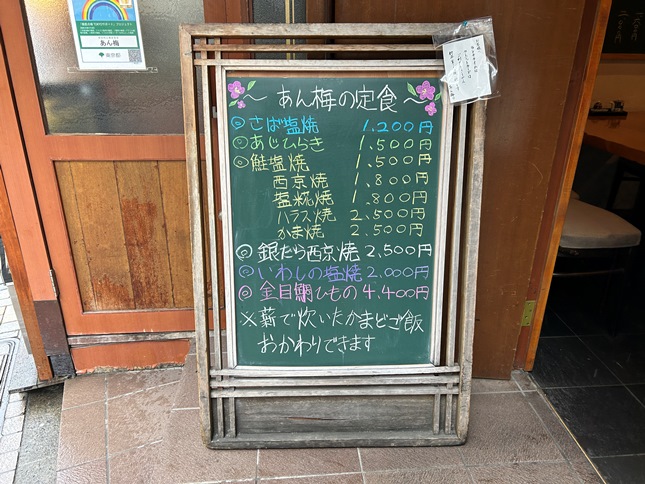 あん梅
東京都
〜 あん梅の定食 〜
◎さば塩焼 1.200円
◎あじひらき 1.500円
◎鮭塩焼 1.500円
西京焼 1.800円
塩糀焼 1.800円
ハラス焼 2.500円
かま焼 2.500円
◎銀だら西京焼 2,500円
◎いわしの塩焼 2.000円
◎金目鯛ひもの 4.400円
※薪で炊いたかまどご飯
おかわりできます